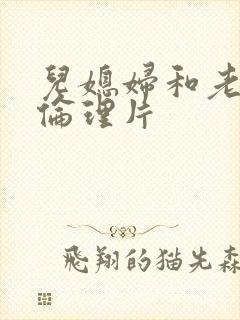 兒媳婦和老
倫理片
飛翔的猫先森